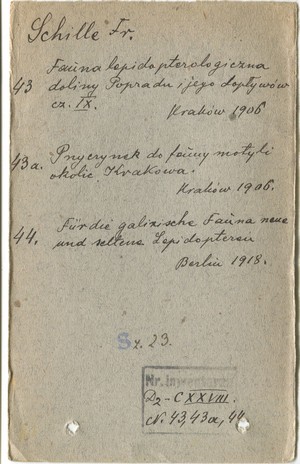 Schille Fr.
43 Fauna lepidopterologiczna
doliny Popradu i jego dopływów
cz. IX.
Kraków 1906
43a. Przyczynek do fauny motyli
okolic Krakowa.
Kraków 1906.
44. Für die galizische Fauna neue
und seltene Lepidopteren
Berlin 1918.
Sz. 23.
Nr. Inwentarza
Dz-CXXVIII.
N. 43, 43a, 44